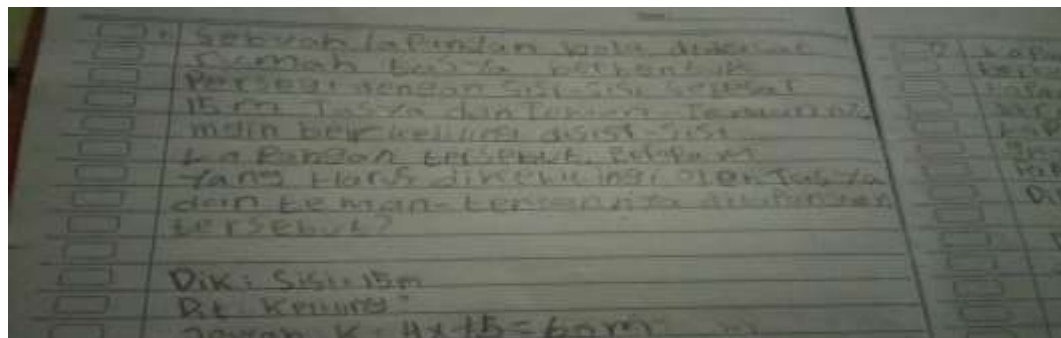 1. Sebuah lapangan bola didekat
rumah tasya berbentuk
Persegi dengan sisi-sisi sebesar
15 m Tasya dan Teman Temannya
main berkeliling disisi-sisi
Lapangan tersebut. Berapa M
Yang Harus dikelilingi oleh Tasya
dan teman-temannya dilapangan
tersebut?
Dik: Sisi: 15m
Dit: Keliling?
Jawab K: 4x15=60m
2